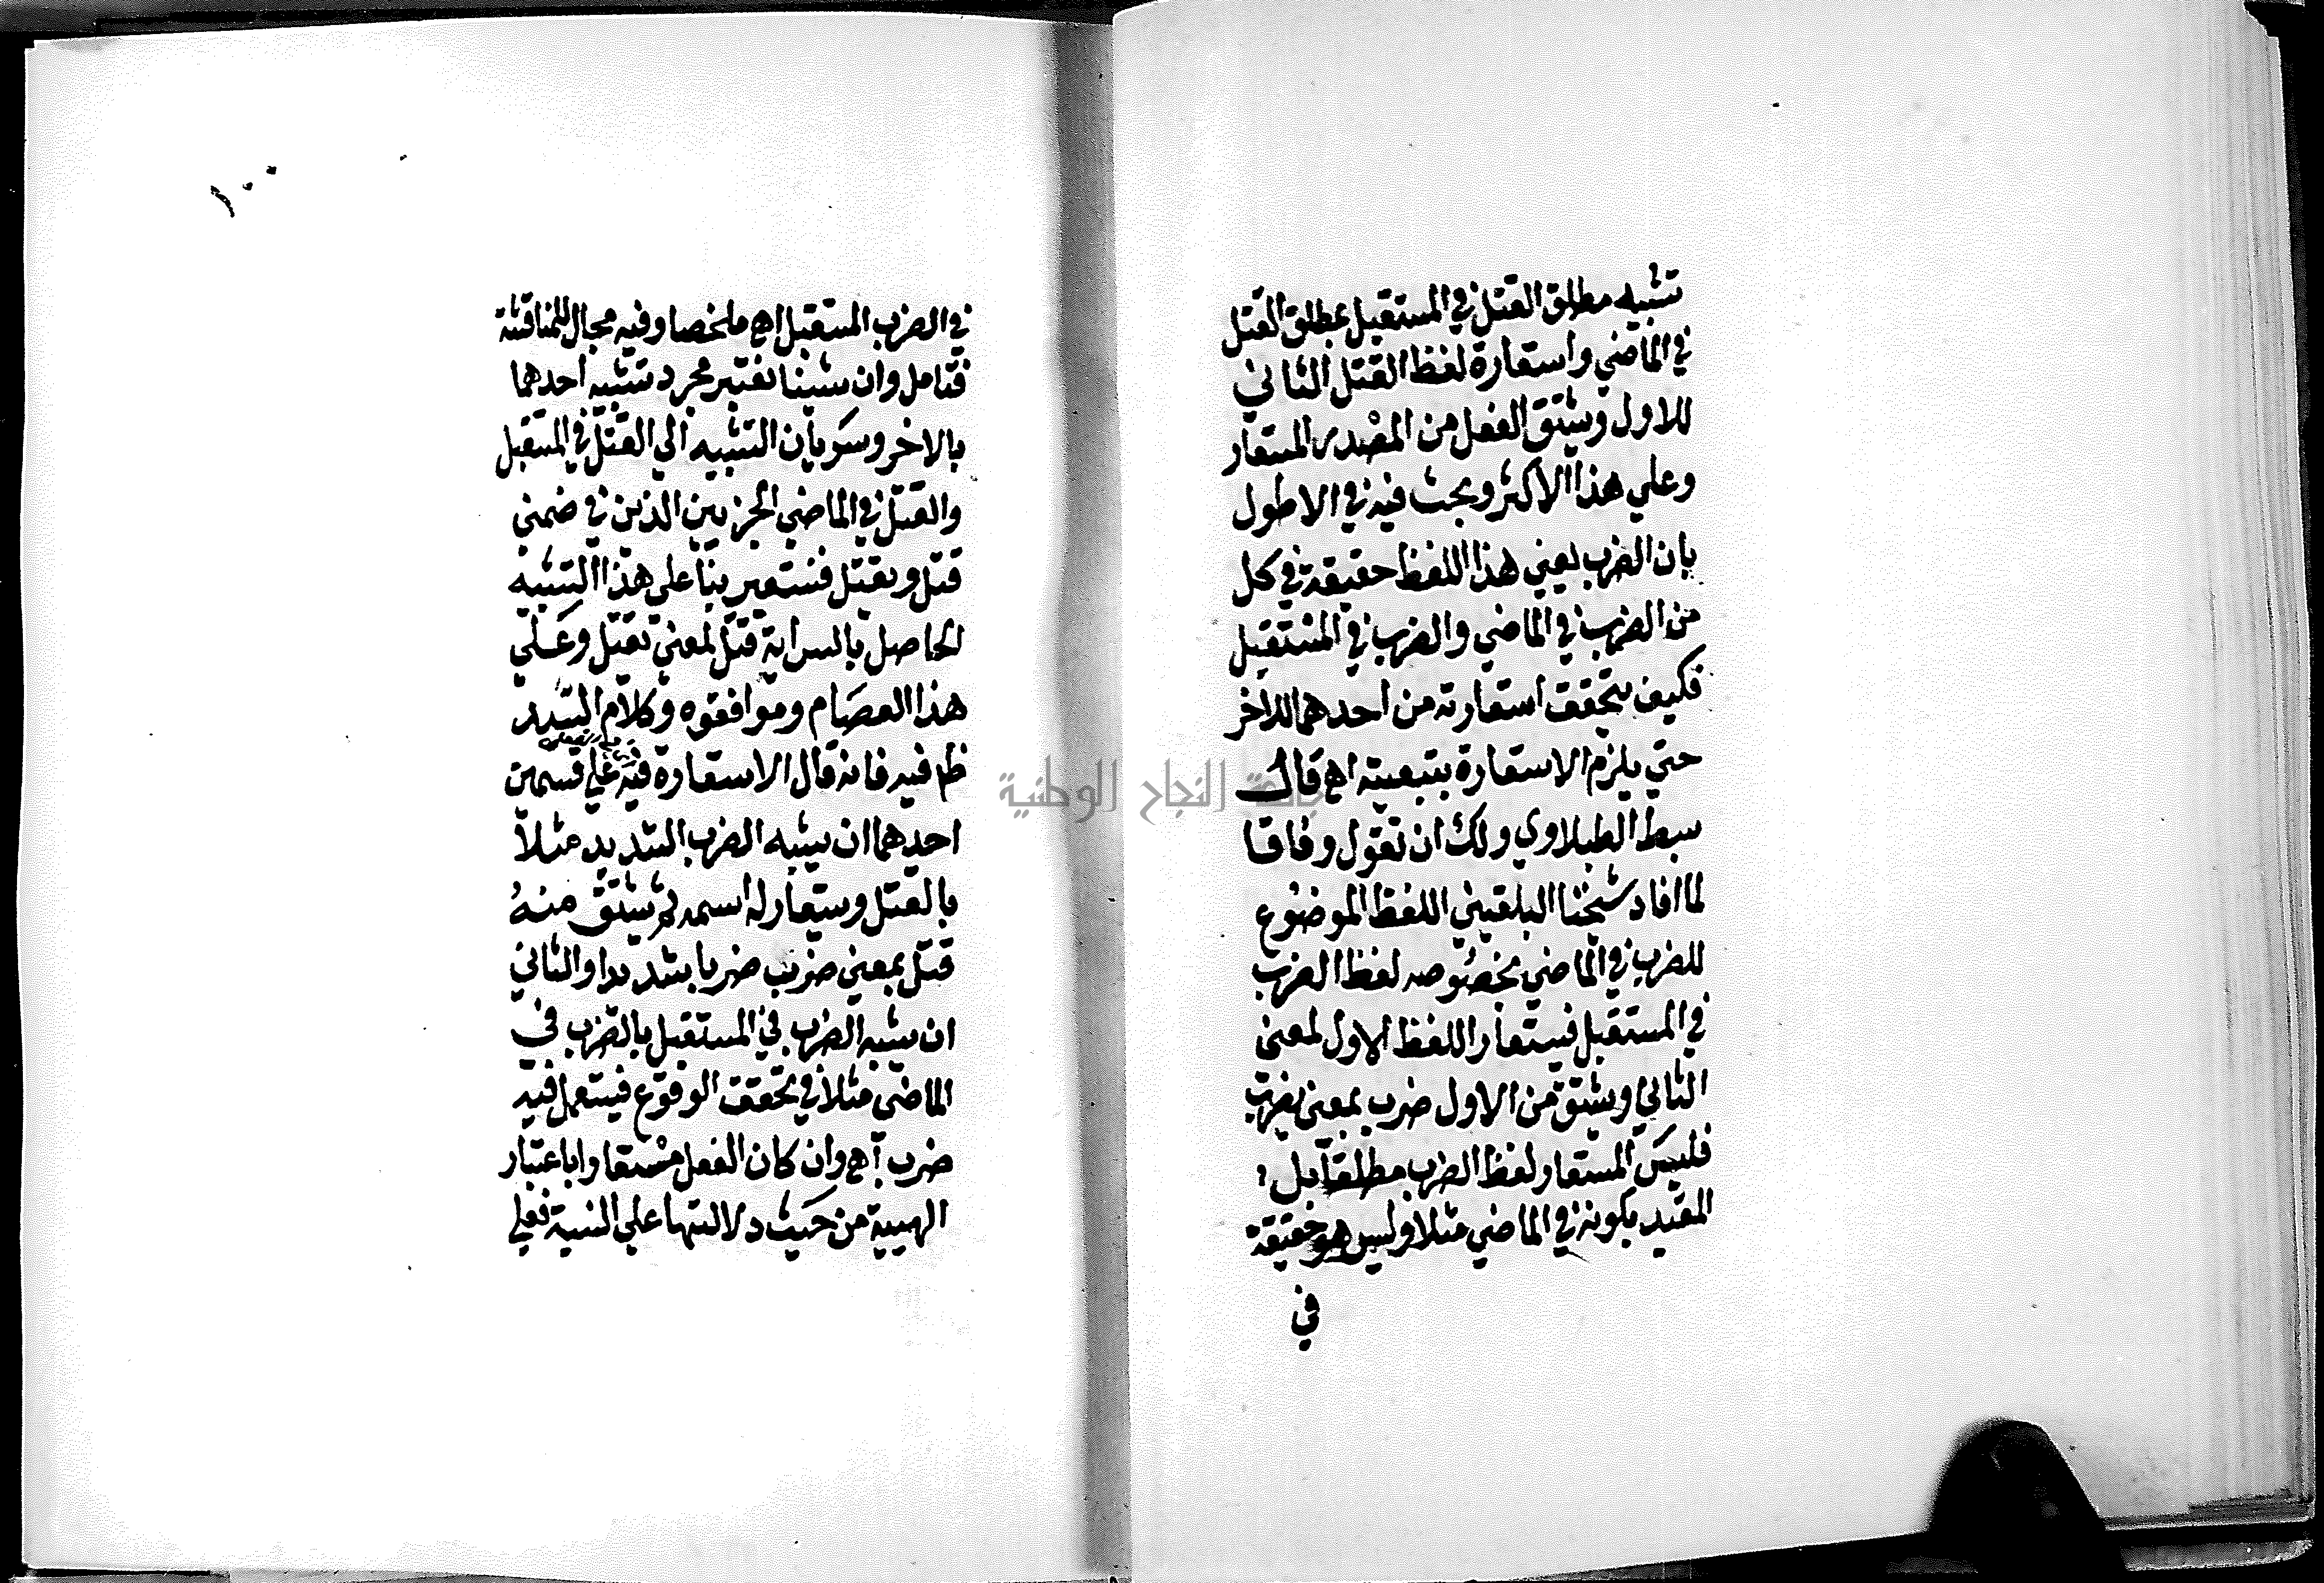 تشبيه مطلق القتل في المستقبل بمطلق القتل
في الماضي واستعارة لفظ القتل الثاني
للاول ويشتق الفعل من المصدر المستعار
وعلي هذا الاكثر وبحث فيه في الاطول
بان الضرب يعني هذا اللفظ حقيقة في كل
من الضرب في الماضي والضرب في المستقبل
فكيف يتحقق استعارته من احدهما للاخر
حتي يلزم الاستعارة بتبعيته اه قال
سبط الطبلاوي ولك ان تقول وفاقا
لما افاد شيخنا البلقيني اللفظ الموضوع
للضرب في الماضي مخصوصه لفظ الضرب
في المستقبل فيستعار اللفظ الاول لمعني
الثاني ويشتق من الاول ضرب بمعني يضرب
فليس المستعار لفظ الضرب مطلقا بل
المقيد بكونه في الماضي مثلا وليس هو حقيقة
في
١٠٠
في الضرب المستقبل اه ملخصا وفيه مجال للمناقشة
فتامل وان شينا نعتبر مجرد تشبيه احدهما
بالاخر وسريان التشبيه الي القتل في المستقبل
والقتل في الماضي الجزيين الذين في ضمني
قتل ويقتل فنستعير بنا علي هذا التشبيه
الحاصل بالسراية قتل لمعني يقتل وعلي
هذا العصام وموافقوه وكلام السيد
ظ فيه فانه قال الاستعارة فيه علي قسمين
احدهما ان يشبه الضرب الشديد مثلا
بالقتل ويستعار له اسمه ثم يشتق منه
قتل بمعني ضرب ضربا شديدا والثاني
ان يشبه الضرب في المستقبل بالضرب في
الماضي مثلا في تحقق الوقوع فيستعمل فيه
ضرب اه وان كان الفعل مستعارا باعتبار
الهيية من حيث دلالتها علي النسبة فعلي
جامعة النجاح الوطنية